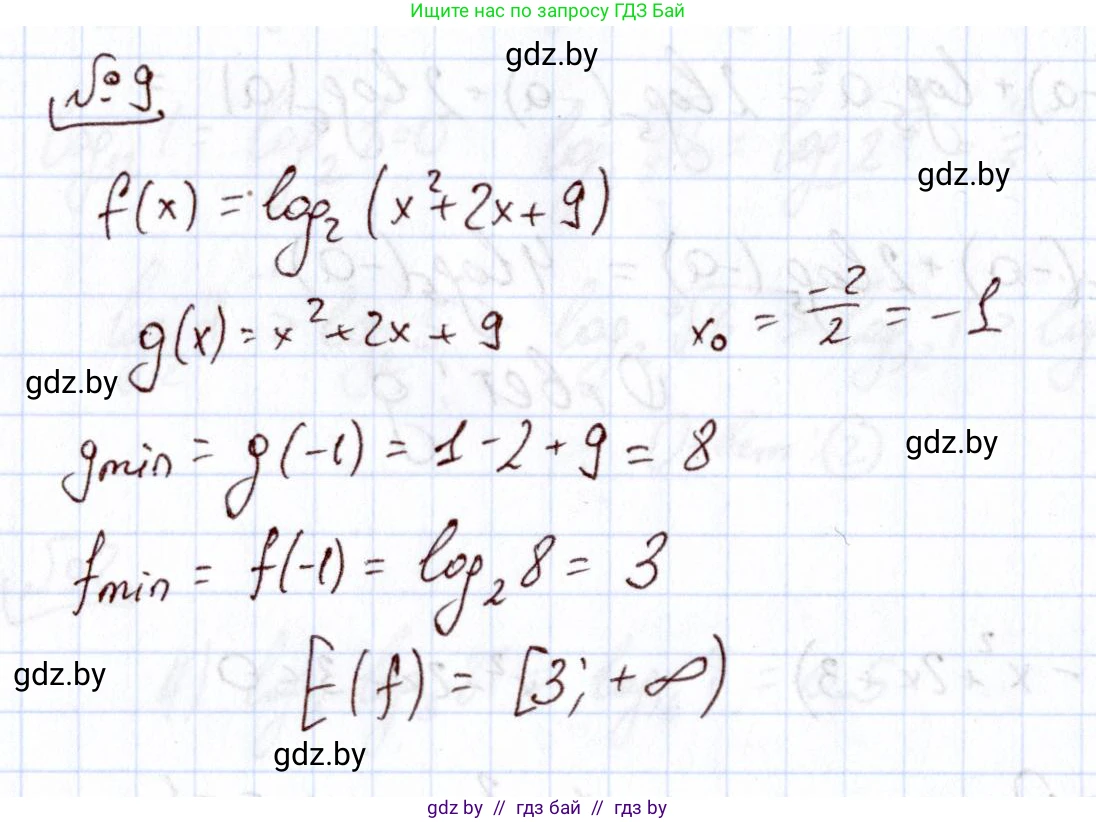 Ищите нас по запросу ГДЗ Бай
gdz.by
№9
f(x) = log₂ (x² + 2x + 9)
gdz.by
g(x) = x² + 2x + 9    x₀ = -2/2 = -1
gdz.by
g min = g(-1) = 1 - 2 + 9 = 8
gdz.by
f min = f(-1) = log₂ 8 = 3
E(f) = [3; +∞)
gdz.by
gdz.by
gdz.by // гдз бай // гдз by